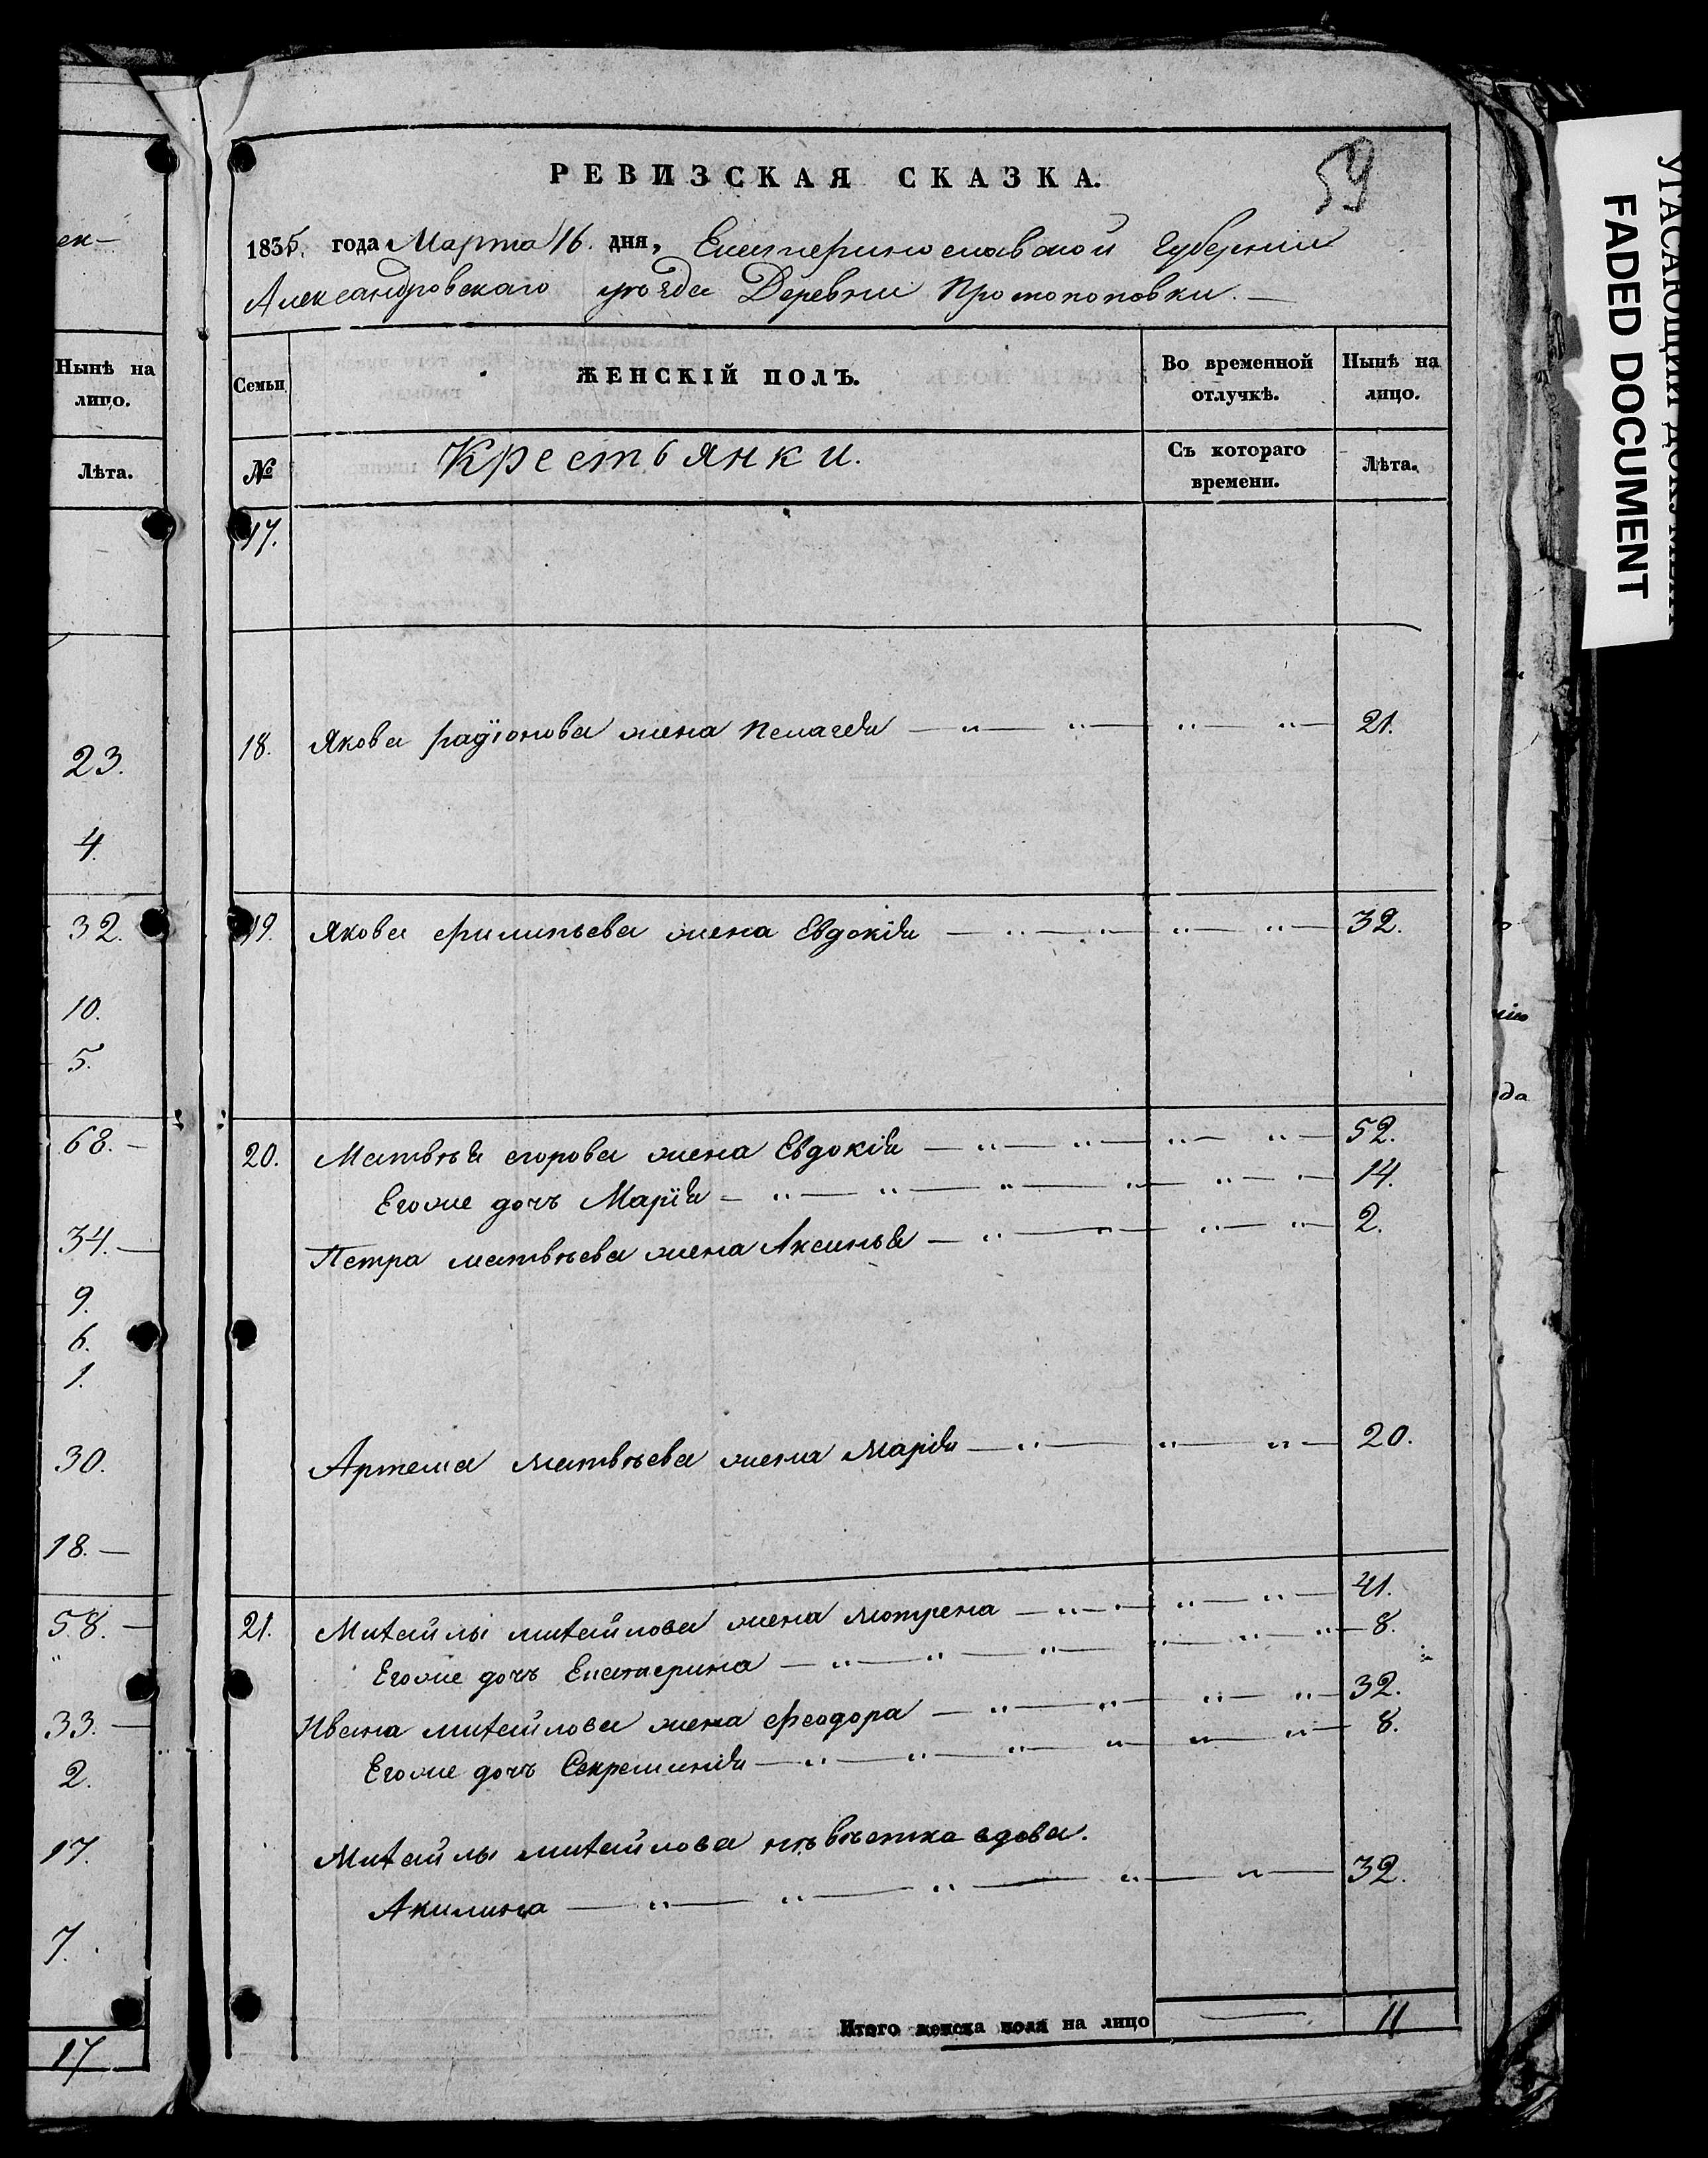 ен-
Нынѣ на
лицо.
Лѣта.
23.
4.
32.
10.
5.
68. —
34. —
9.
6.
1.
30.
18. —
58. —
33. —
2.
17.
7.
17
РЕВИЗСКАЯ СКАЗКА.
59
1835. года Марта 16. дня, Екатеринославской Губернии
Александровскаго уѣзда Деревни Протопоповки. —
Семьи
ЖЕНСКІЙ ПОЛЪ.
Во временной отлучкѣ.
Нынѣ на лицо.
№
Крестьянки.
Съ котораго времени.
Лѣта.
17.
18. Якова радіонова жена Пелагея — „ — „ — „ „ — 21.
19. Якова филипьева жена Евдокія — „ — „ — „ „ — 32.
20. Матвѣя егорова жена Евдокія — „ — „ — „ — „ — 52.
Егоже дочъ Марія — „ — „ — „ — „ — „ — „ — 14.
Петра матвѣева жена Аксинья — „ — „ — „ — „ — 2.
Артема матвѣева жена Марія — „ — „ „ — 20.
21. Михайлы михайлова жена мотрена — „ — „ — „ — „ — 41.
Егоже дочъ Екатерина — „ — „ — „ — „ — „ — „ — 8.
Ивана михайлова жена феодора — „ — „ — „ — „ — 32.
Егоже дочъ Секретинія — „ — „ — „ — „ — „ — „ — 8.
Михайлы михайлова нѣвѣстка вдова.
Акилина — „ — „ — „ — „ — „ — 32.
Итого женска пола на лицо — 11
УГАСАЮЩИЙ ДОКУМЕНТ
FADED DOCUMENT
ню
да